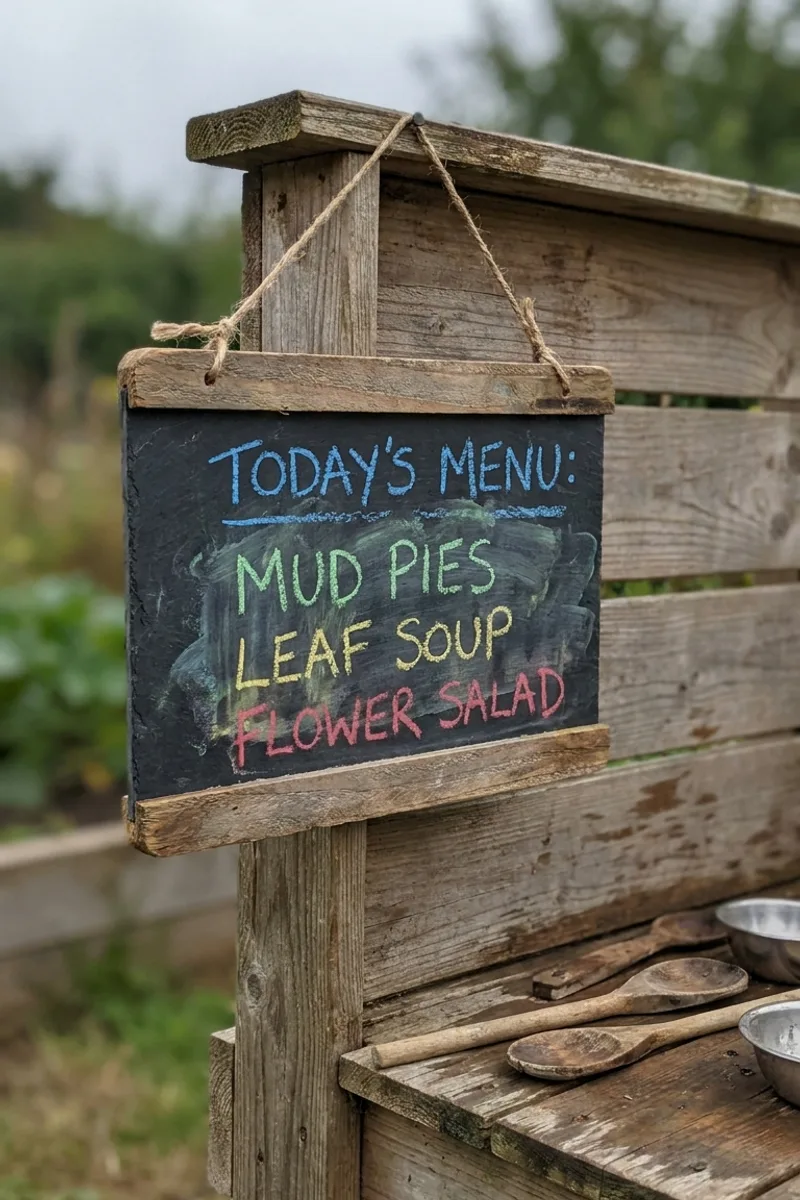 TODAY'S MENU:
MUD PIES
LEAF SOUP
FLOWER SALAD